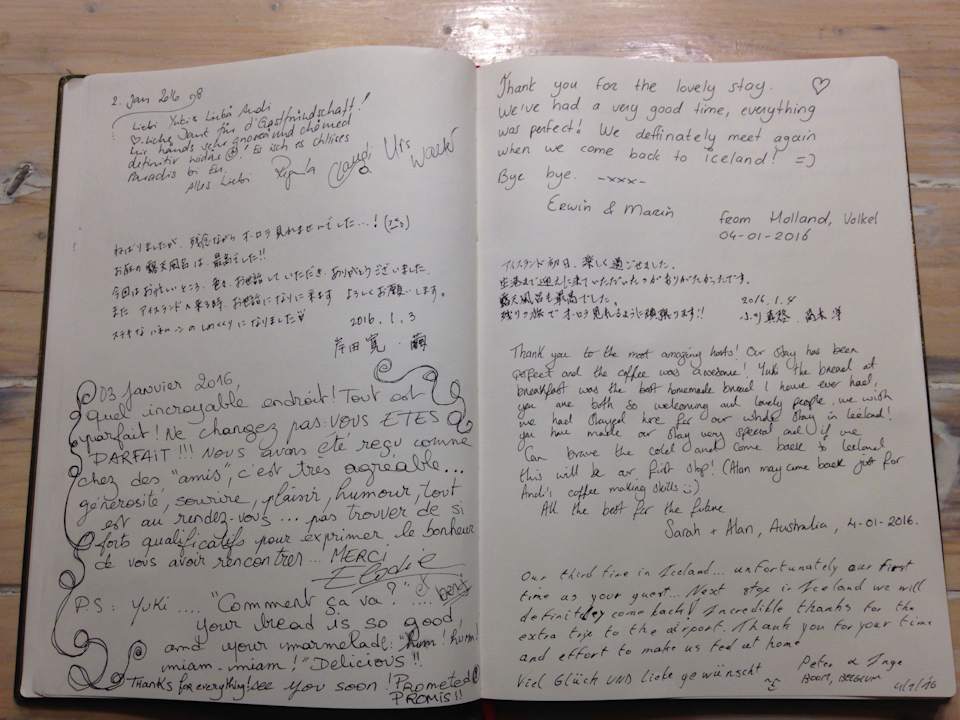 2. Jan 2016
Liebi Yuki & Liebä Andi
♡-liche Dank für d'Gastfründschaft!
Mir händs sehr gnossä und chömed
definitiv wodas ☺! Es isch es chliises
Paradis bi Eu.
Alles Liebi Regula Claudia Urs Walti
ねばりましたが、残念ながら オーロラ見れませんでした…!
お庭の露天風呂は、最高でした!!
今回はお忙しいところ、色々、お世話していただき、ありがとうございました。
また アイスランドへ来る時、お世話になりに来ます よろしくお願いします。
ステキなハネムーンのしめくくりになりました♥
2016. 1. 3
岸田 寛・繭
03 Janvier 2016,
Quel incroyable endroit! Tout est
parfait! Ne changez pas: VOUS ETES
PARFAIT!!! Nous avons été reçu comme
chez des "amis", c'est très agréable...
générosité, sourire, plaisir, humour, tout
est au rendez-vous... pas trouver de si
forts qualificatifs pour exprimer le bonheur
de vous avoir rencontrer... MERCI
Elodie
PS: YUKI .... "Comment ça va?" ....
Your bread is so good,
and your marmelade: "hum! hum!
miam-miam!" Delicious!!
Thanks for everything! See you soon! Prometed
PROMIS!!
Thank you for the lovely stay. ♡
We've had a very good time, everything
was perfect! We deffinately meet again
when we come back to iceland! =)
Bye bye. -xxx-
Erwin & Marin
from Holland, Volkel
04-01-2016
アイスランド初日、楽しく過ごせました。
空港まで迎えに来ていただいたのがありがたかったです。
露天風呂も最高でした。 2016. 1. 4
残りの旅でオーロラ見れるように頑張ります!!
Thank you to the most amazing hosts! Our stay has been
perfect and the coffee was awesome! Yuki the bread at
breakfast was the best homemade bread I have ever had,
you are both so welcoming and lovely people, we wish
we had stayed here for our whole stay in Iceland!
You have made our stay very special and if we
can brave the cold and come back to Iceland
this will be our first stop! (Alan may come back just for
Andi's coffee making skills :))
All the best for the future
Sarah + Alan, Australia, 4-01-2016.
Our third time in Iceland.... unfortunately our first
time as your guest... Next stop in Iceland we will
definitley come back! Incredible thanks for the
extra trip to the airport. Thank you for your time
and effort to make us feel at home
Viel Glück UND liebe gewünscht
Peter & Inge
BOOM, BELGIUM
4/1/'16